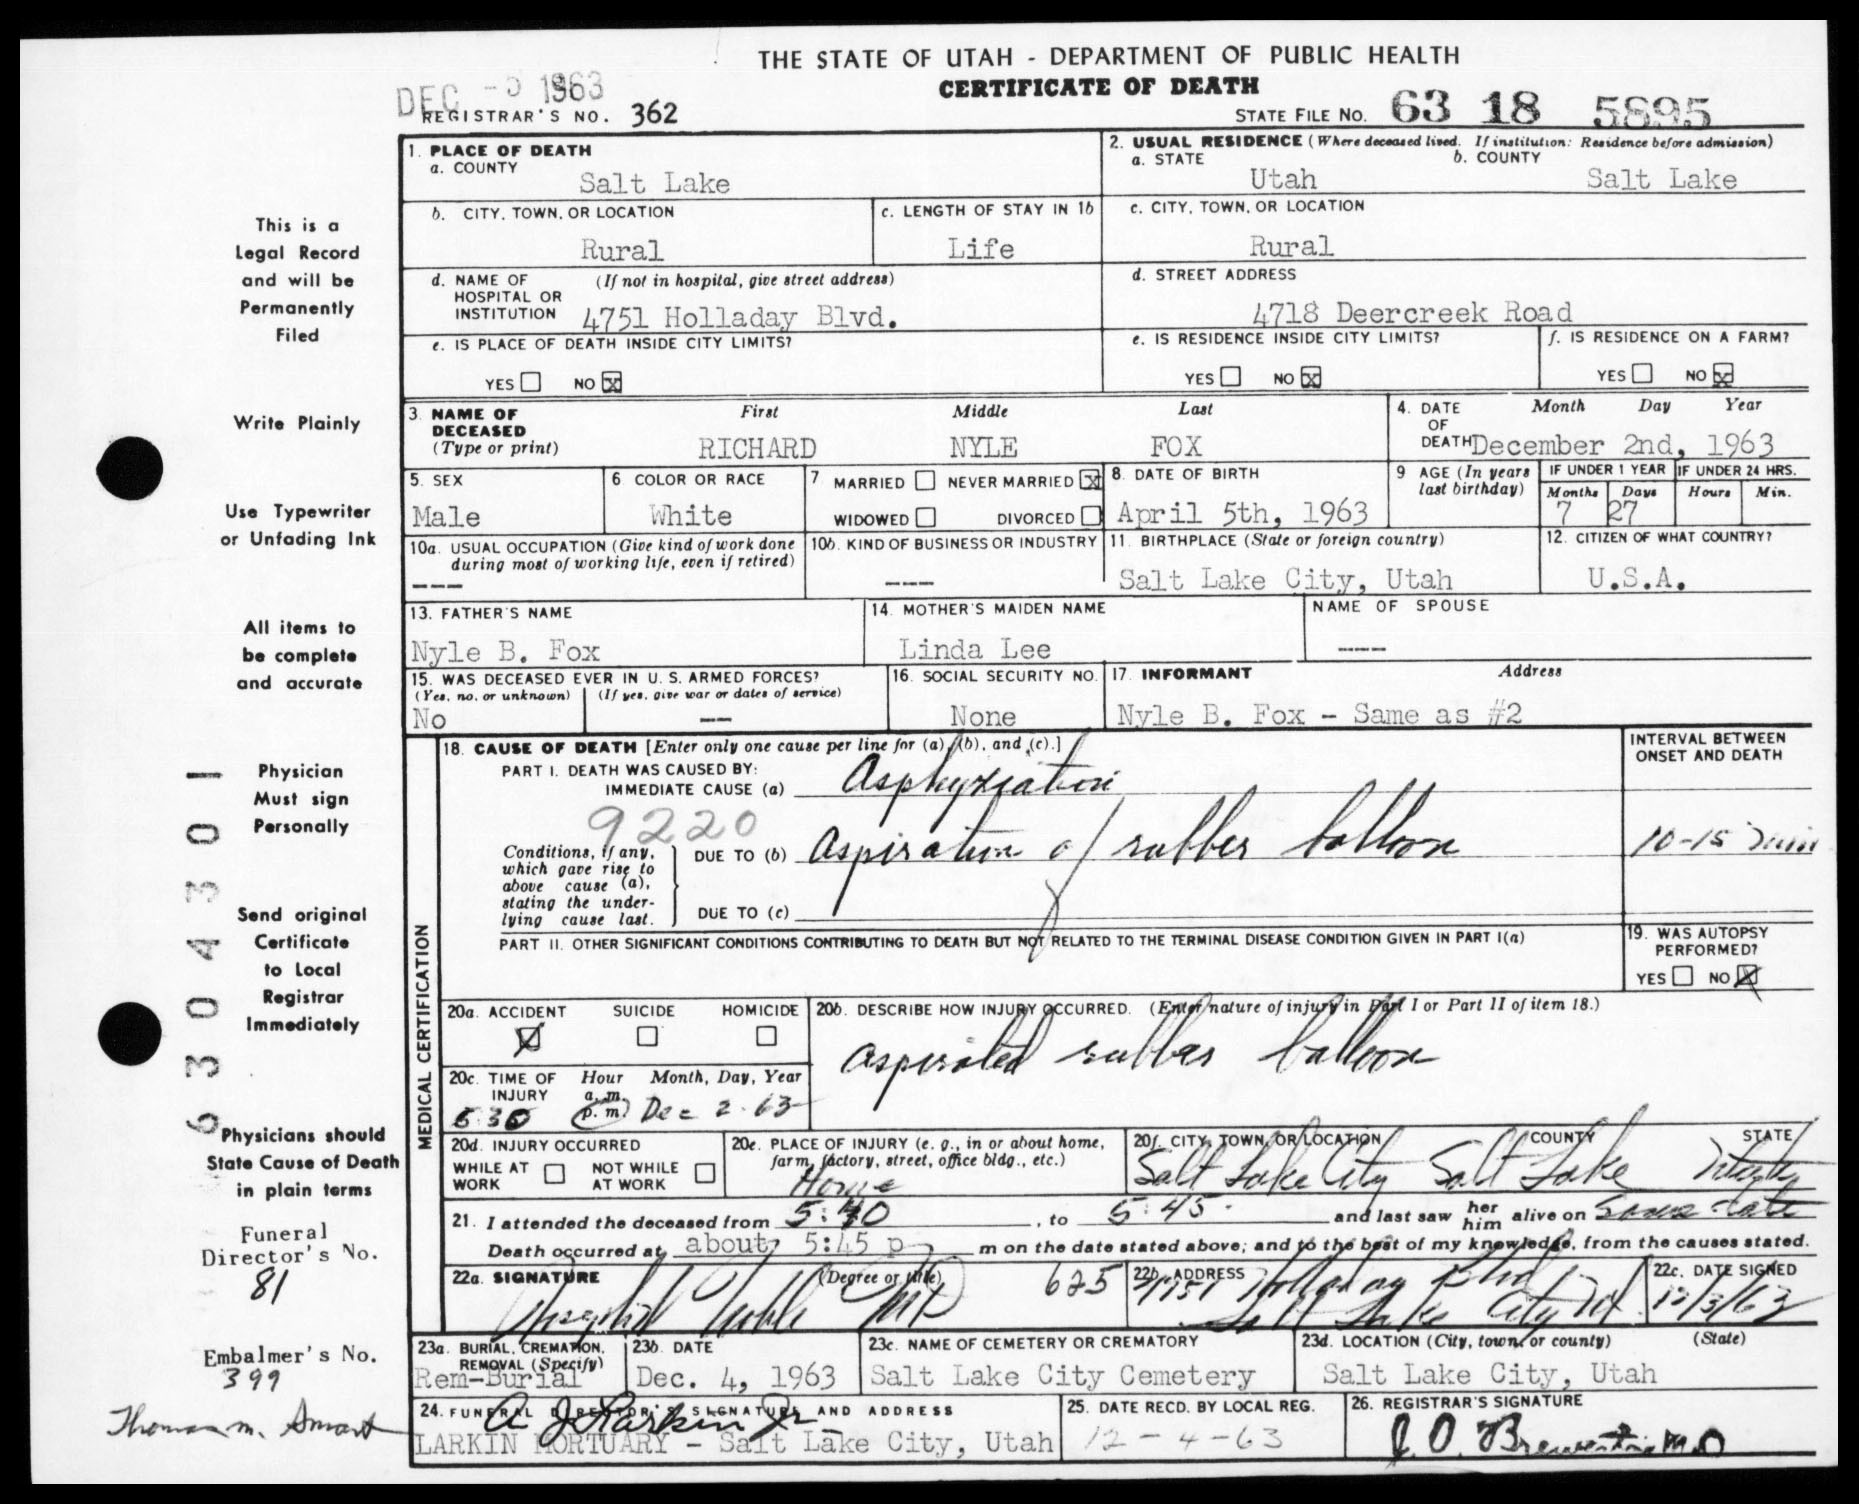 THE STATE OF UTAH - DEPARTMENT OF PUBLIC HEALTH
CERTIFICATE OF DEATH
DEC - 5 1963
REGISTRAR'S NO. 362
STATE FILE NO. 63 18 5895
This is a
Legal Record
and will be
Permanently
Filed
Write Plainly
Use Typewriter
or Unfading Ink
All items to
be complete
and accurate
Physician
Must sign
Personally
Send original
Certificate
to Local
Registrar
Immediately
Physicians should
State Cause of Death
in plain terms
Funeral
Director's No.
81
Embalmer's No.
399
Thomas M. Smart
6 3 0 4 3 0 1
1. PLACE OF DEATH
a. COUNTY
Salt Lake
2. USUAL RESIDENCE (Where deceased lived. If institution: Residence before admission)
a. STATE b. COUNTY
Utah Salt Lake
b. CITY, TOWN, OR LOCATION
Rural
c. LENGTH OF STAY IN 1b
Life
c. CITY, TOWN, OR LOCATION
Rural
d. NAME OF HOSPITAL OR INSTITUTION (If not in hospital, give street address)
4751 Holladay Blvd.
d. STREET ADDRESS
4718 Deercreek Road
e. IS PLACE OF DEATH INSIDE CITY LIMITS?
YES NO X
e. IS RESIDENCE INSIDE CITY LIMITS?
YES NO X
f. IS RESIDENCE ON A FARM?
YES NO X
3. NAME OF DECEASED (Type or print)
First Middle Last
RICHARD NYLE FOX
4. DATE OF DEATH Month Day Year
December 2nd, 1963
5. SEX
Male
6 COLOR OR RACE
White
7 MARRIED NEVER MARRIED X
WIDOWED DIVORCED
8. DATE OF BIRTH
April 5th, 1963
9 AGE (In years last birthday)
IF UNDER 1 YEAR IF UNDER 24 HRS.
Months Days Hours Min.
7 27
10a. USUAL OCCUPATION (Give kind of work done during most of working life, even if retired)
---
10b. KIND OF BUSINESS OR INDUSTRY
----
11. BIRTHPLACE (State or foreign country)
Salt Lake City, Utah
12. CITIZEN OF WHAT COUNTRY?
U.S.A.
13. FATHER'S NAME
Nyle B. Fox
14. MOTHER'S MAIDEN NAME
Linda Lee
NAME OF SPOUSE
----
15. WAS DECEASED EVER IN U. S. ARMED FORCES?
(Yes, no, or unknown) (If yes, give war or dates of service)
No --
16. SOCIAL SECURITY NO.
None
17. INFORMANT Address
Nyle B. Fox - Same as #2
MEDICAL CERTIFICATION
18. CAUSE OF DEATH [Enter only one cause per line for (a), (b), and (c).]
PART I. DEATH WAS CAUSED BY:
IMMEDIATE CAUSE (a) Asphyxiation
9220
Conditions, if any, which gave rise to above cause (a), stating the underlying cause last.
DUE TO (b) Aspiration of rubber balloon
DUE TO (c)
INTERVAL BETWEEN ONSET AND DEATH
10-15 min
PART II. OTHER SIGNIFICANT CONDITIONS CONTRIBUTING TO DEATH BUT NOT RELATED TO THE TERMINAL DISEASE CONDITION GIVEN IN PART I(a)
19. WAS AUTOPSY PERFORMED?
YES NO X
20a. ACCIDENT SUICIDE HOMICIDE
X
20b. DESCRIBE HOW INJURY OCCURRED. (Enter nature of injury in Part I or Part II of item 18.)
aspirated rubber balloon
20c. TIME OF INJURY Hour Month, Day, Year
a. m. p. m.
5 30 Dec 2-63
20d. INJURY OCCURRED
WHILE AT WORK NOT WHILE AT WORK
20e. PLACE OF INJURY (e. g., in or about home, farm, factory, street, office bldg., etc.)
Home
20f. CITY, TOWN, OR LOCATION COUNTY STATE
Salt Lake City Salt Lake Utah
21. I attended the deceased from 5:40, to 5:45. and last saw her him alive on same date
Death occurred at about 5:45 p m on the date stated above; and to the best of my knowledge, from the causes stated.
22a. SIGNATURE (Degree or title)
MD 625
22b. ADDRESS
4751 Holladay Blvd
Salt Lake City Ut
22c. DATE SIGNED
12/3/63
23a. BURIAL, CREMATION, REMOVAL (Specify)
Rem-Burial
23b. DATE
Dec. 4, 1963
23c. NAME OF CEMETERY OR CREMATORY
Salt Lake City Cemetery
23d. LOCATION (City, town, or county) (State)
Salt Lake City, Utah
24. FUNERAL DIRECTOR'S SIGNATURE AND ADDRESS
A J Larkin Jr
LARKIN MORTUARY - Salt Lake City, Utah
25. DATE RECD. BY LOCAL REG.
12-4-63
26. REGISTRAR'S SIGNATURE